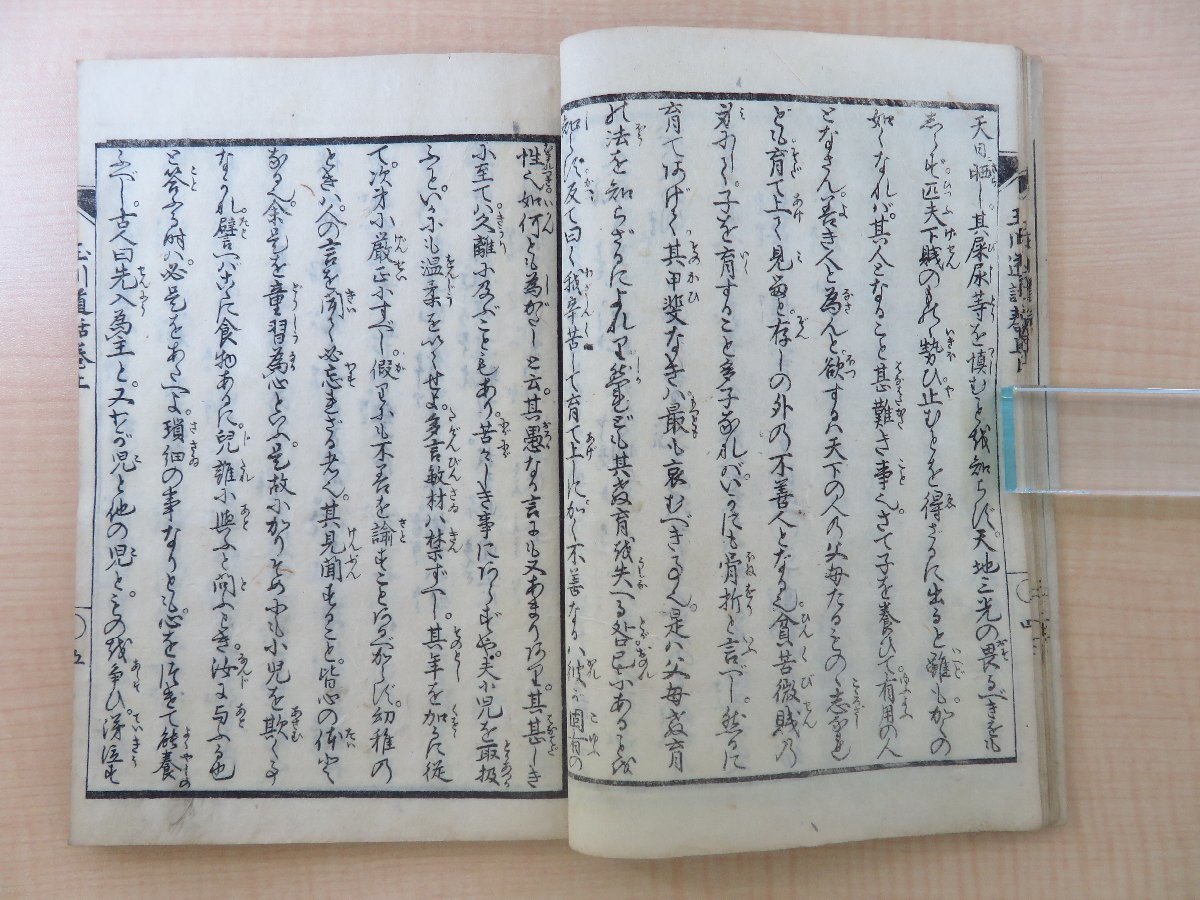 天日に晒し其屎尿等を慎むことを知らず天地三光の畏るべきをも
しらず匹夫下賤のもの勢ひ止むことを得ざるに出ると雖もかくの
如くなれバ其人となること甚難き事也さて子を養ひて有用の人
となさん善き人と為んと欲するハ天下の人の父母たるもの志なれ
ども育て上て見ると存しの外の不善人となる也貧苦微賤の
身にして子を育すること多子なれバいかにも骨折と言べし然るに
育てあげて其甲斐なきハ最も哀むべきる也是ハ父母教育
の法を知らざるによれり然れども其教育を失へる咎己にあることを
知らず反て曰く我辛苦して育て上しに不善なるハ彼が固有の
性也如何とも為がたしと云其愚なる言にも又あまりあり其甚しき
に至てハ久離に及ぶこともあり苦々しき事にあらずや夫小児を取扱
ふといかにも温柔をいくせよ多言敏材ハ禁ずべし其年を加るに従
て次才に厳正にすべし假りにも不善を諭すことあるべからず幼稚の
ときハ人の言を聞て必忘れざる者也其見聞すること皆心の体と
なる也余是を童習為心といふ是故にかりそめにも小児を欺く事
なかれ譬へバこゝに食物あるに児誰に與ふと問ふとき汝に与ふる也
と答ふる時ハ必是をあたへよ瑣细の事なりとも心を注ぎて能養
ふべし古人曰先入為主と又わが児と他の児とものを争ひ涕泣す
玉川道話巻上
四
五